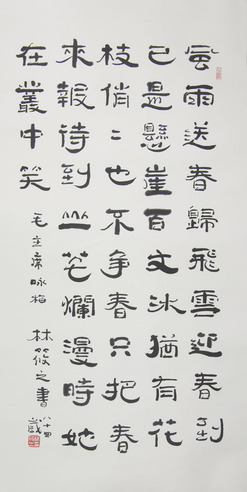 風雨送春歸飛雪迎春到
已是懸崖百丈冰猶有花
枝俏〻也不争春只把春
來報待到山花爛漫時她
在叢中笑
毛主席咏梅
林筱之書
八十四歲